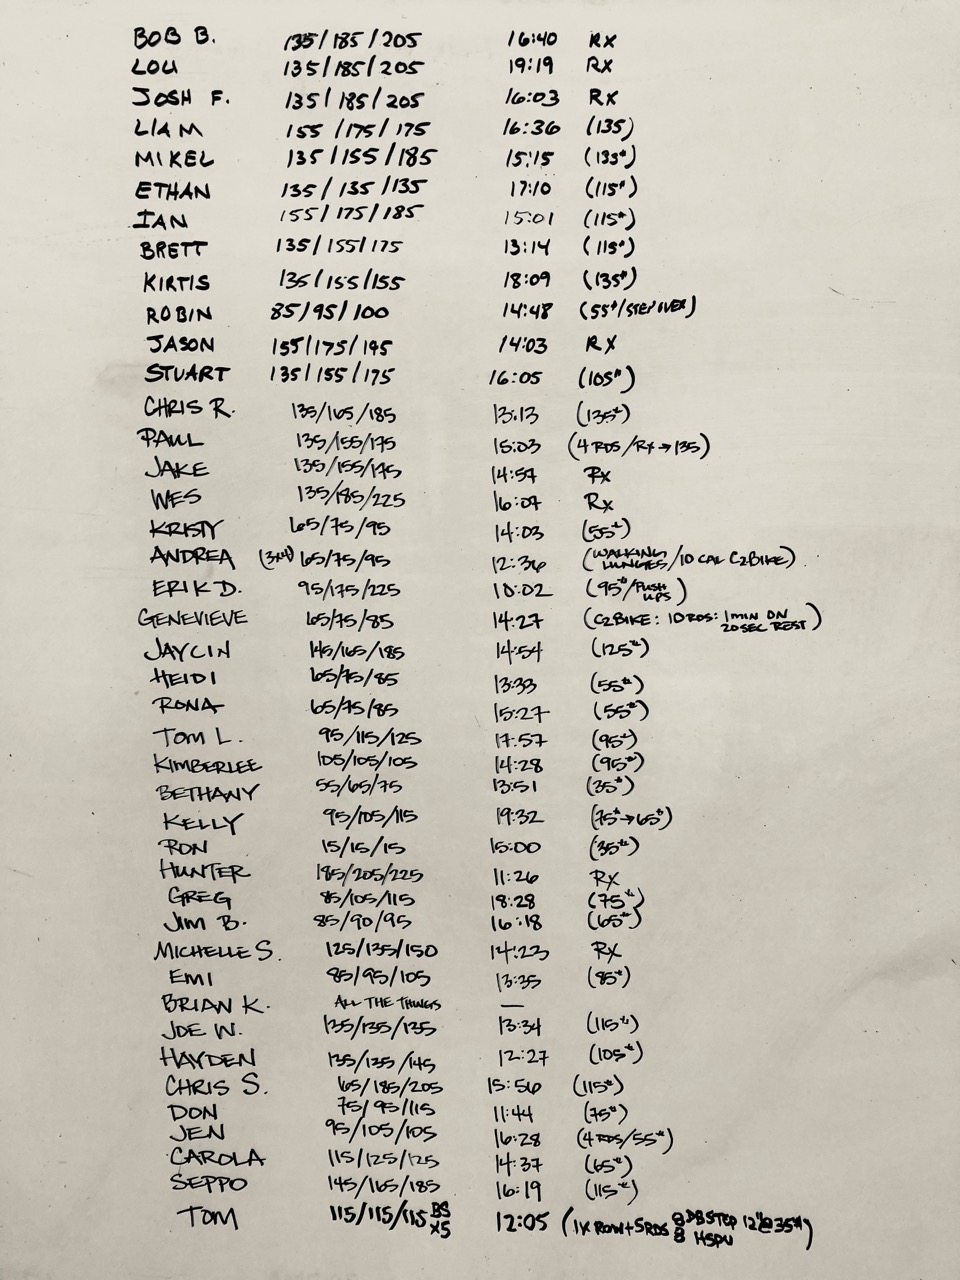 BOB B. 135/185/205 16:40 RX
LOU 135/185/205 19:19 RX
JOSH F. 135/185/205 16:03 RX
LIAM 155/175/175 16:36 (135)
MIKEL 135/155/185 15:15 (135#)
ETHAN 135/135/135 17:10 (115#)
IAN 155/175/185 15:01 (115#)
BRETT 135/155/175 13:14 (115#)
KIRTIS 135/155/155 18:09 (135#)
ROBIN 85/95/100 14:48 (55#/STEP OVER)
JASON 155/175/195 14:03 RX
STUART 135/155/175 16:05 (105#)
CHRIS R. 135/165/185 13:13 (135#)
PAUL 135/155/175 15:03 (4 RDS/RX→135)
JAKE 135/155/175 14:57 RX
WES 135/185/225 16:07 RX
KRISTY 65/75/95 14:03 (55#)
ANDREA (3x4) 65/75/95 12:36 (WALKING LUNGES/10 CAL C2BIKE)
ERIK D. 95/175/225 10:02 (95#/PUSH UPS)
GENEVIEVE 65/75/85 14:27 (C2BIKE: 10 RDS: 1 MIN ON 20 SEC REST)
JAYCIN 145/165/185 14:54 (125#)
HEIDI 65/75/85 13:33 (55#)
RONA 65/75/85 15:27 (55#)
TOM L. 95/115/125 17:57 (95#)
KIMBERLEE 105/105/105 14:28 (95#)
BETHANY 55/65/75 13:51 (35#)
KELLY 95/105/115 19:32 (75#→65#)
RON 15/15/15 15:00 (35#)
HUNTER 185/205/225 11:26 RX
GREG 85/105/115 18:28 (75#)
JIM B. 85/90/95 16:18 (65#)
MICHELLE S. 125/135/150 14:23 RX
EMI 85/95/105 13:35 (85#)
BRIAN K. ALL THE THINGS —
JOE W. 135/135/135 13:34 (115#)
HAYDEN 135/135/145 12:27 (105#)
CHRIS S. 165/185/205 15:56 (115#)
DON 75/95/115 11:44 (75#)
JEN 95/105/105 16:28 (4 RDS/55#)
CAROLA 115/125/125 14:37 (65#)
SEPPO 145/165/185 16:19 (115#)
TOM 115/115/115 BS X5 12:05 (1K ROW+5RDS 8 DB STEP 12"@35# 8 HSPU)